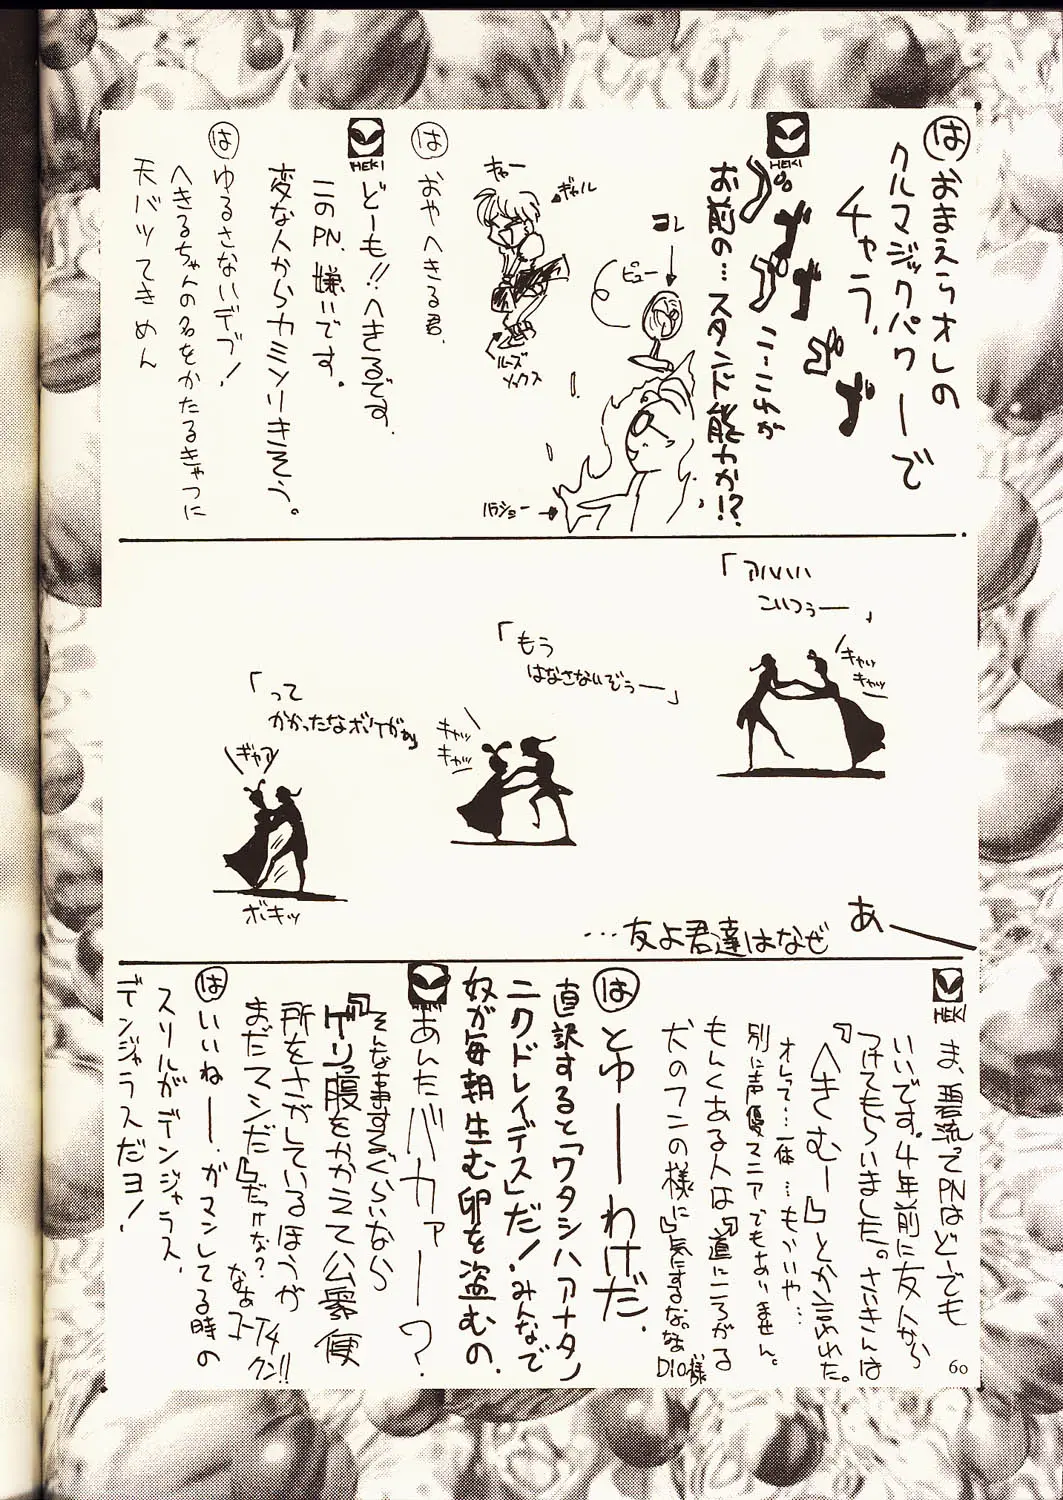 は おまえらオレの
クルマジックパワーで
チャラ、
HEKI
ブゲゲプゲゲポゲ
こ…これが
お前の…スタンド能力か!?
コレ
ピュー
ハラショー
キャー
ギャル
ルーズ
ソックス
は おやへきる君、
HEKI
どーも!!へきるです、
このPN、嫌いです。
変な人からカミソリきそう。
は ゆるさないデブ!
へきるちゃんの名をかたるきゃつに
天バツてきめん
「アハハハ
こいつぅー」
キャッ
キャッ
「もう
はなさないぞぅー」
キャッ
キャッ
「って
かかったなボケがぁ
ギャア
ボキッ
あー
…友よ君達はなぜ
HEKI
ま、碧流ってPNはどーでも
いいです。4年前に友人から
つけてもらいました。さいきんは
『へきむー』とか言われた。
オレって…一体…もういいや…
別に声優マニアでもありません。
もんくある人は『道にころがる
犬のフンの様に』気にするな。なぁ
DIO様
は とゆーわけだ、
直訳すると「ワタシハアナタノ
ニクドレイデス」だ!みんなで
奴が毎朝生む卵を盗むの、
HEKI
あんたバカァー?
『そんな事するぐらいなら
ゲリ腹をかかえて公衆便
所をさがしているほうが
まだマシだ』だっけな?
なぁコーイチ
クン!!
は いいねー、ガマンしてる時の
スリルがデンジャラス、
デンジャラスだヨ!
60